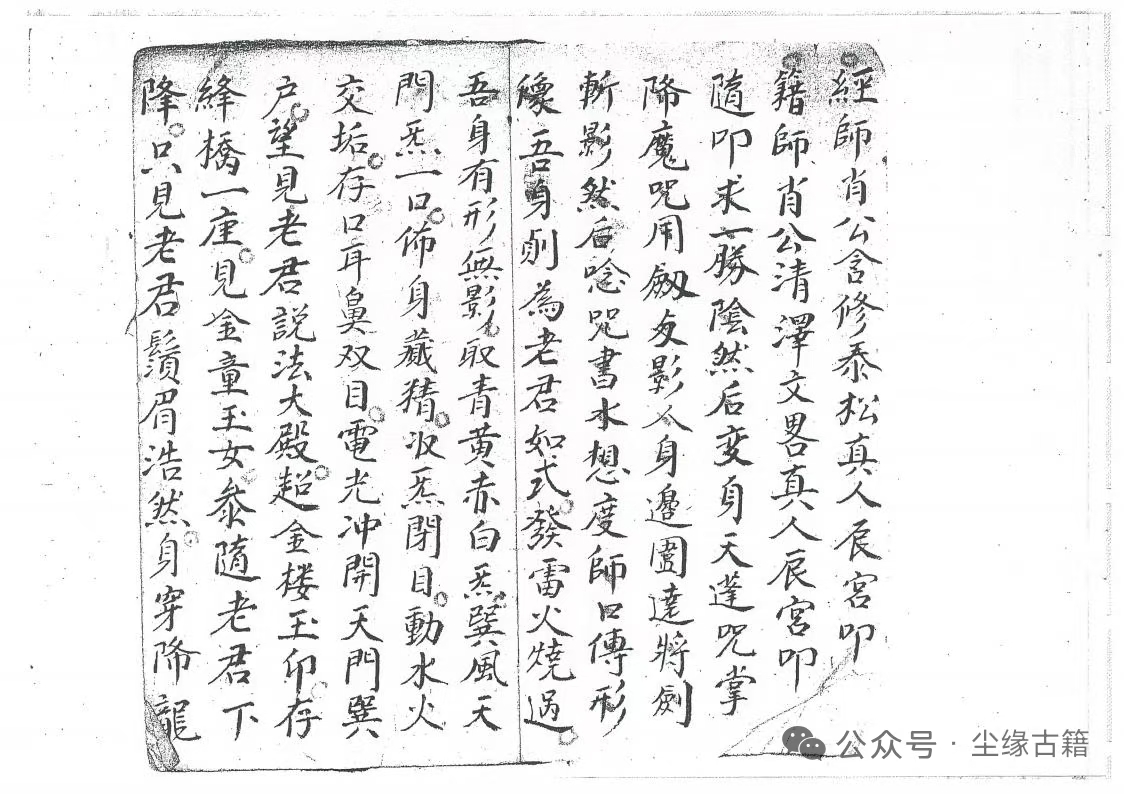 經師肖公含修泰松真人辰宮叩
籍師肖公清澤文畧真人辰宮叩
隨叩求一勝陰然后变身天蓬咒掌
降魔咒用劔友影人身邊圍達將劍
斬影然后唸咒書水想度師口傳形
像吾身則為老君如式發雷火燒過
吾身有形無影取青黃赤白炁巽風天
門炁一口佈身藏精收炁閉目動水火
交垢存口耳鼻双目電光冲開天門巽
户望見老君説法大殿超金楼玉卯存
絳橋一座見金童玉女参隨老君下
降只見老君鬚眉浩然身穿降龍
公众号·尘缘古籍